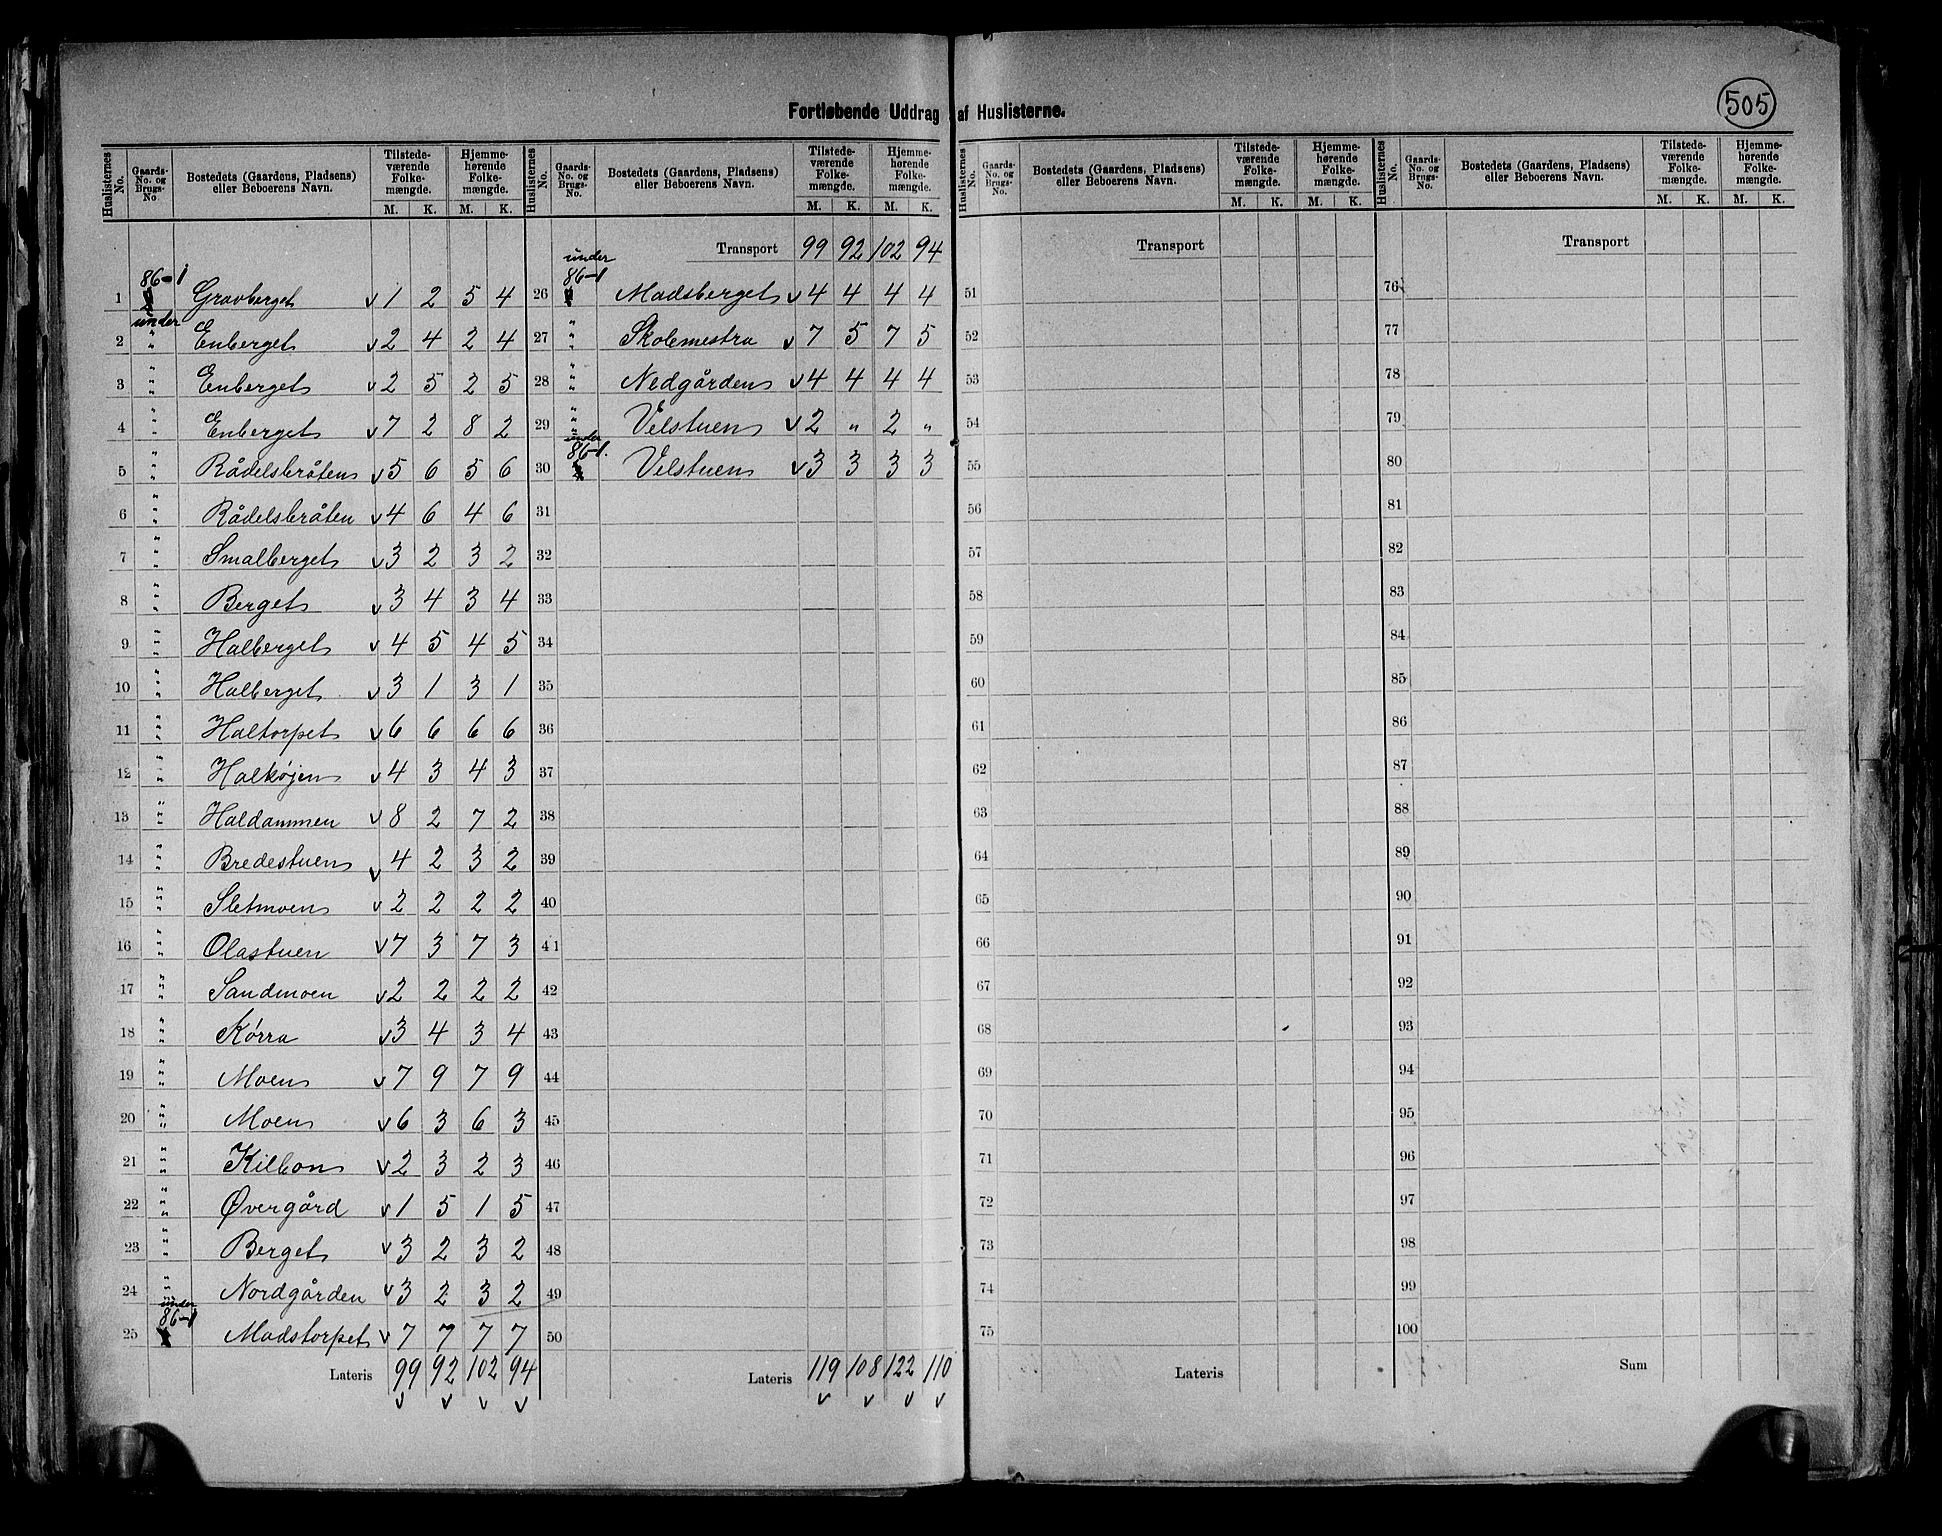 505
Fortløbende Uddrag af Huslisterne.
Huslisternes No. | Gaards-No. og Brugs-No | Bostedets (Gaardens, Pladsens) eller Beboerens Navn. | Tilstedeværende Folkemængde. M. K. | Hjemmehørende Folkemængde. M. K.
1 86-1 Gravberget v 1 2 5 4
2 under " Enberget v 2 4 2 4
3 " Enberget v 2 5 2 5
4 " Enberget v 7 2 8 2
5 " Rådelsbråten v 5 6 5 6
6 " Rådelsbråten v 4 6 4 6
7 " Smalberget v 3 2 3 2
8 " Berget v 3 4 3 4
9 " Halberget v 4 5 4 5
10 " Halberget v 3 1 3 1
11 " Haltorpet v 6 6 6 6
12 " Halkøjen v 4 3 4 3
13 " Haldammen v 8 2 7 2
14 " Bredestuen v 4 2 3 2
15 " Sletmoen v 2 2 2 2
16 " Olastuen v 7 3 7 3
17 " Sandmoen v 2 2 2 2
18 " Kørra v 3 4 3 4
19 " Moen v 7 9 7 9
20 " Moen v 6 3 6 3
21 " Kilbon v 2 3 2 3
22 " Øvergård v 1 5 1 5
23 " Berget v 3 2 3 2
24 " Nordgården v 3 2 3 2
25 under 86-1 Madstorpet v 7 7 7 7
Lateris 99 92 102 94
v v v v
Huslisternes No. | Gaards-No. og Brugs-No. | Bostedets (Gaardens, Pladsens) eller Beboerens Navn. | Tilstedeværende Folkemængde. M. K. | Hjemmehørende Folkemængde. M. K.
Transport 99 92 102 94
26 under 86-1 Madsberget v 4 4 4 4
27 " Skolemestra v 7 5 7 5
28 " Nedgården v 4 4 4 4
29 " Velstuen v 2 " 2 "
30 under 86-1. Velstuen v 3 3 3 3
31
32
33
34
35
36
37
38
39
40
41
42
43
44
45
46
47
48
49
50
Lateris 119 108 122 110
v v v v
Huslisternes No. | Gaards-No. og Brugs-No. | Bostedets (Gaardens, Pladsens) eller Beboerens Navn. | Tilstedeværende Folkemængde. M. K. | Hjemmehørende Folkemængde. M. K.
Transport
51
52
53
54
55
56
57
58
59
60
61
62
63
64
65
66
67
68
69
70
71
72
73
74
75
Lateris
Huslisternes No. | Gaards-No. og Brugs-No. | Bostedets (Gaardens, Pladsens) eller Beboerens Navn. | Tilstedeværende Folkemængde. M. K. | Hjemmehørende Folkemængde. M. K.
Transport
76
77
78
79
80
81
82
83
84
85
86
87
88
89
90
91
92
93
94
95
96
97
98
99
100
Sum